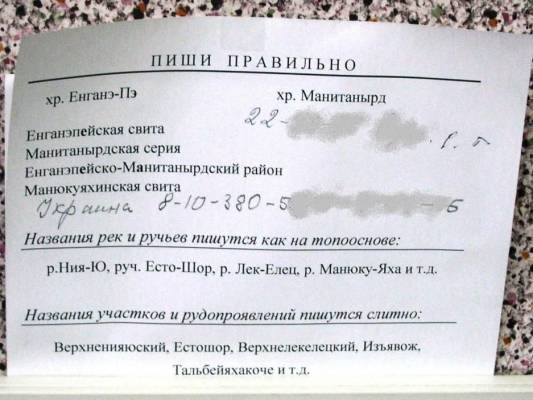 ПИШИ ПРАВИЛЬНО
хр. Енганэ-Пэ хр. Манитанырд
22-
Енганэпейская свита
Манитанырдская серия
Енганэпейско-Манитанырдский район
Манюкуяхинская свита
Украина 8-10-380-5 -5
Названия рек и ручьев пишутся как на топооснове:
р.Ния-Ю, руч. Есто-Шор, р. Лек-Елец, р. Манюку-Яха и т.д.
Названия участков и рудопроявлений пишутся слитно:
Верхненияюский, Естошор, Верхнелекелецкий, Изъявож,
Тальбейяхакоче и т.д.